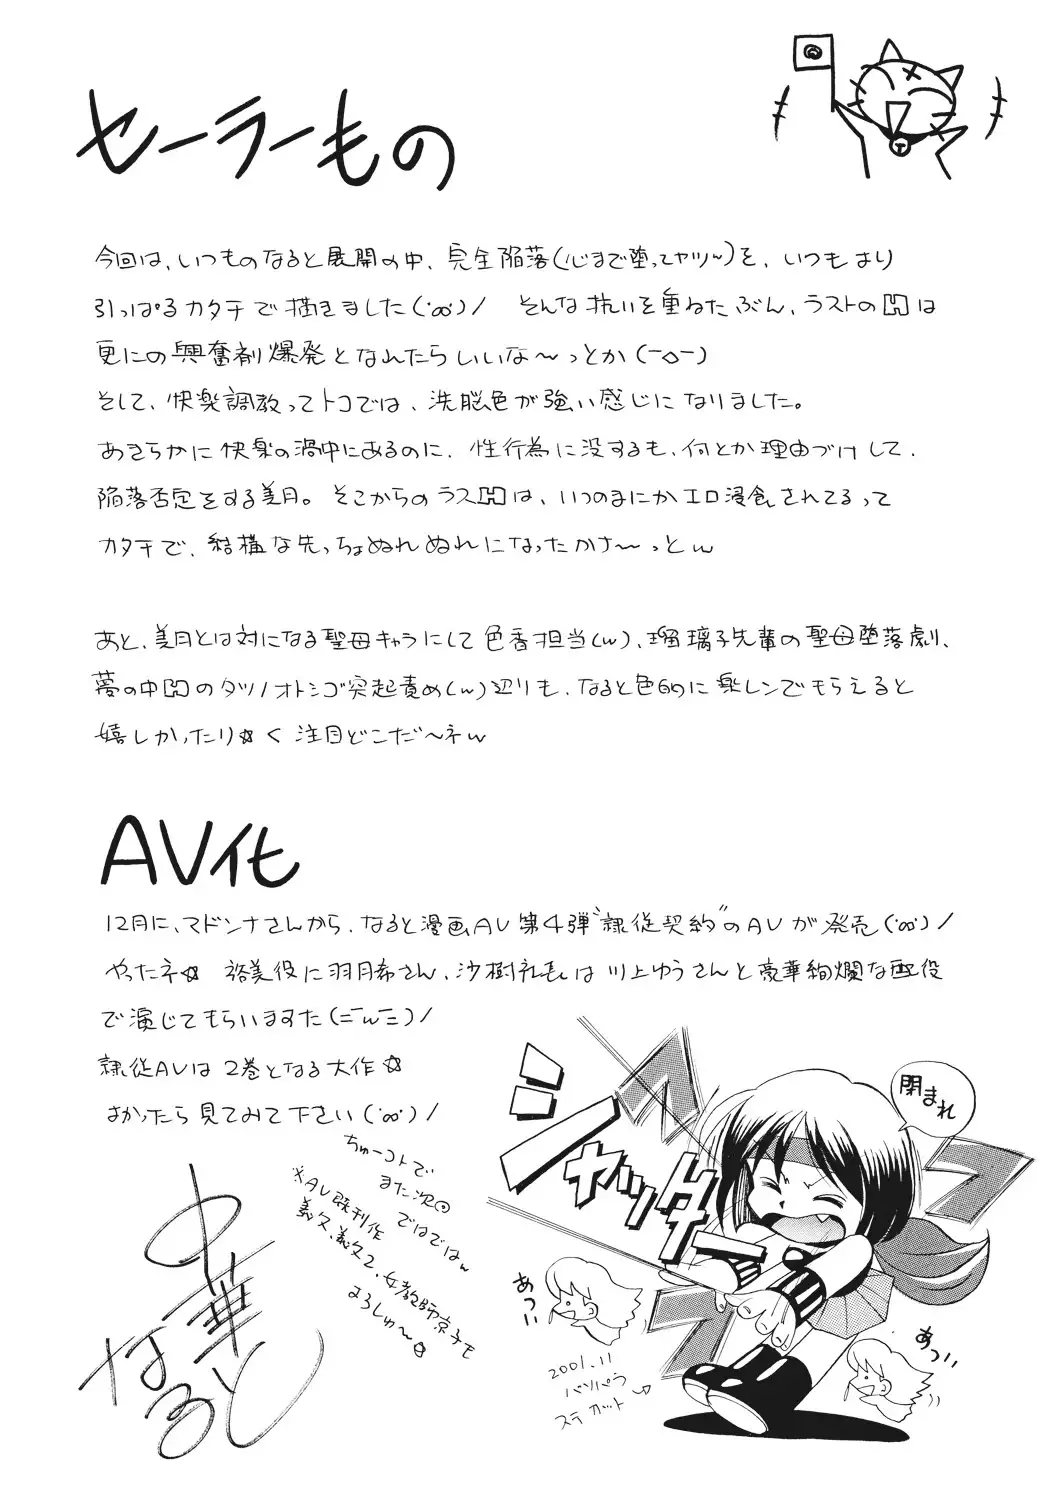 セーラーもの
今回は、いつものなると展開の中、完全陥落(心まで堕ってヤツ~)を、いつもより
引っぱるカタチで描きました(^∞^)/ そんな抗いを重ねたぶん、ラストのHは
更にの興奮剤爆発となれたらいいな~っとか(ー◇ー)
そして、快楽調教ってトコでは、洗脳色が強い感じになりました。
あきらかに快楽の渦中にあるのに、性行為に没するも、何とか理由づけして、
陥落否定をする美月。そこからのラスHは、いつのまにかエロ浸食されてるって
カタチで、結構な先っちょぬれぬれになったかさ~っとw
あと、美月とは対になる聖母キャラにして色香担当(w)、瑠璃子先輩の聖母堕落劇、
夢の中Hのタツノオトシゴ突起責め(w)辺りも、なると色的に楽しンでもらえると
嬉しかったり☆く 注目どこだ~ネw
AV化
12月に、マドンナさんから、なると漫画AV第4弾"隷従契約"のAVが発売(^∞^)/
やったネ☆ 裕美役に羽月希さん、沙樹礼長は川上ゆうさんと豪華絢爛な配役
で演じてもらいますた(=^w^=)/
隷従AVは2巻となる大作☆
よかったら見てみて下さい(^∞^)/
ちゅーコトで
また次回
ではではw
※AV既刊作
義父、義父2、女教師京子も
よろしゅ~☆
中華なると
シャッター
閉まれ
あつい
あつい
2001.11
パソパラ
ステカット